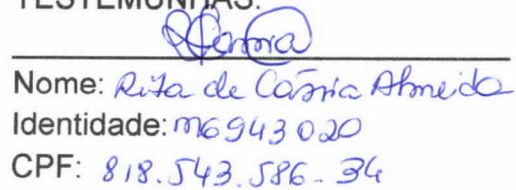 TESTEMUNHAS:
Nome: Rita de Cássia Almeida
Identidade: M6943020
CPF: 818.543.586-34